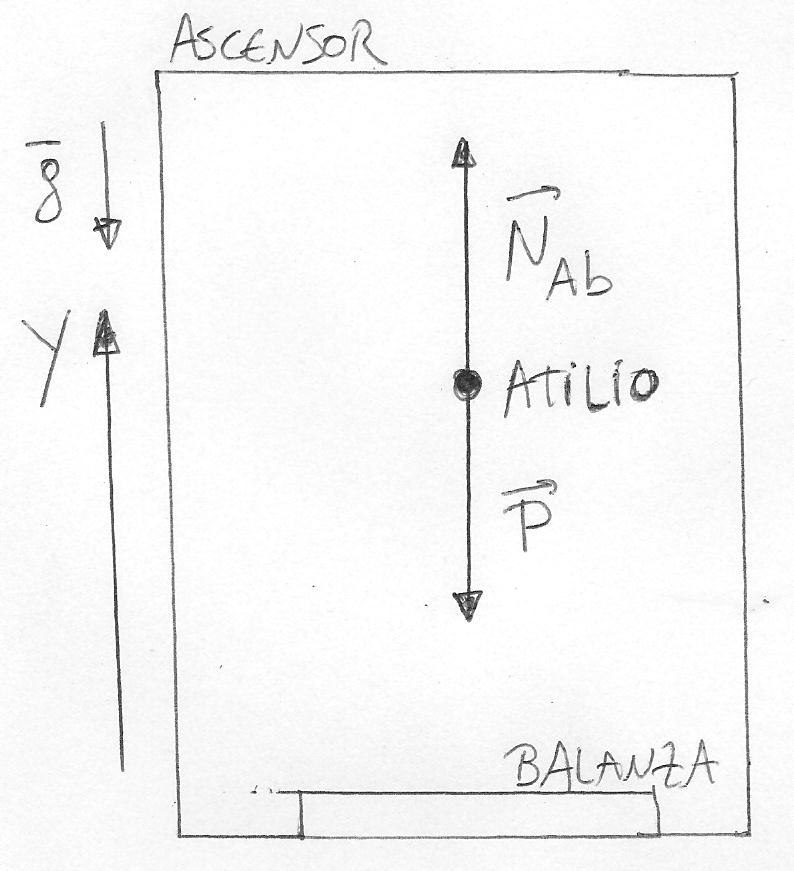 ASCENSOR
g
N Ab
y
ATILIO
P
BALANZA